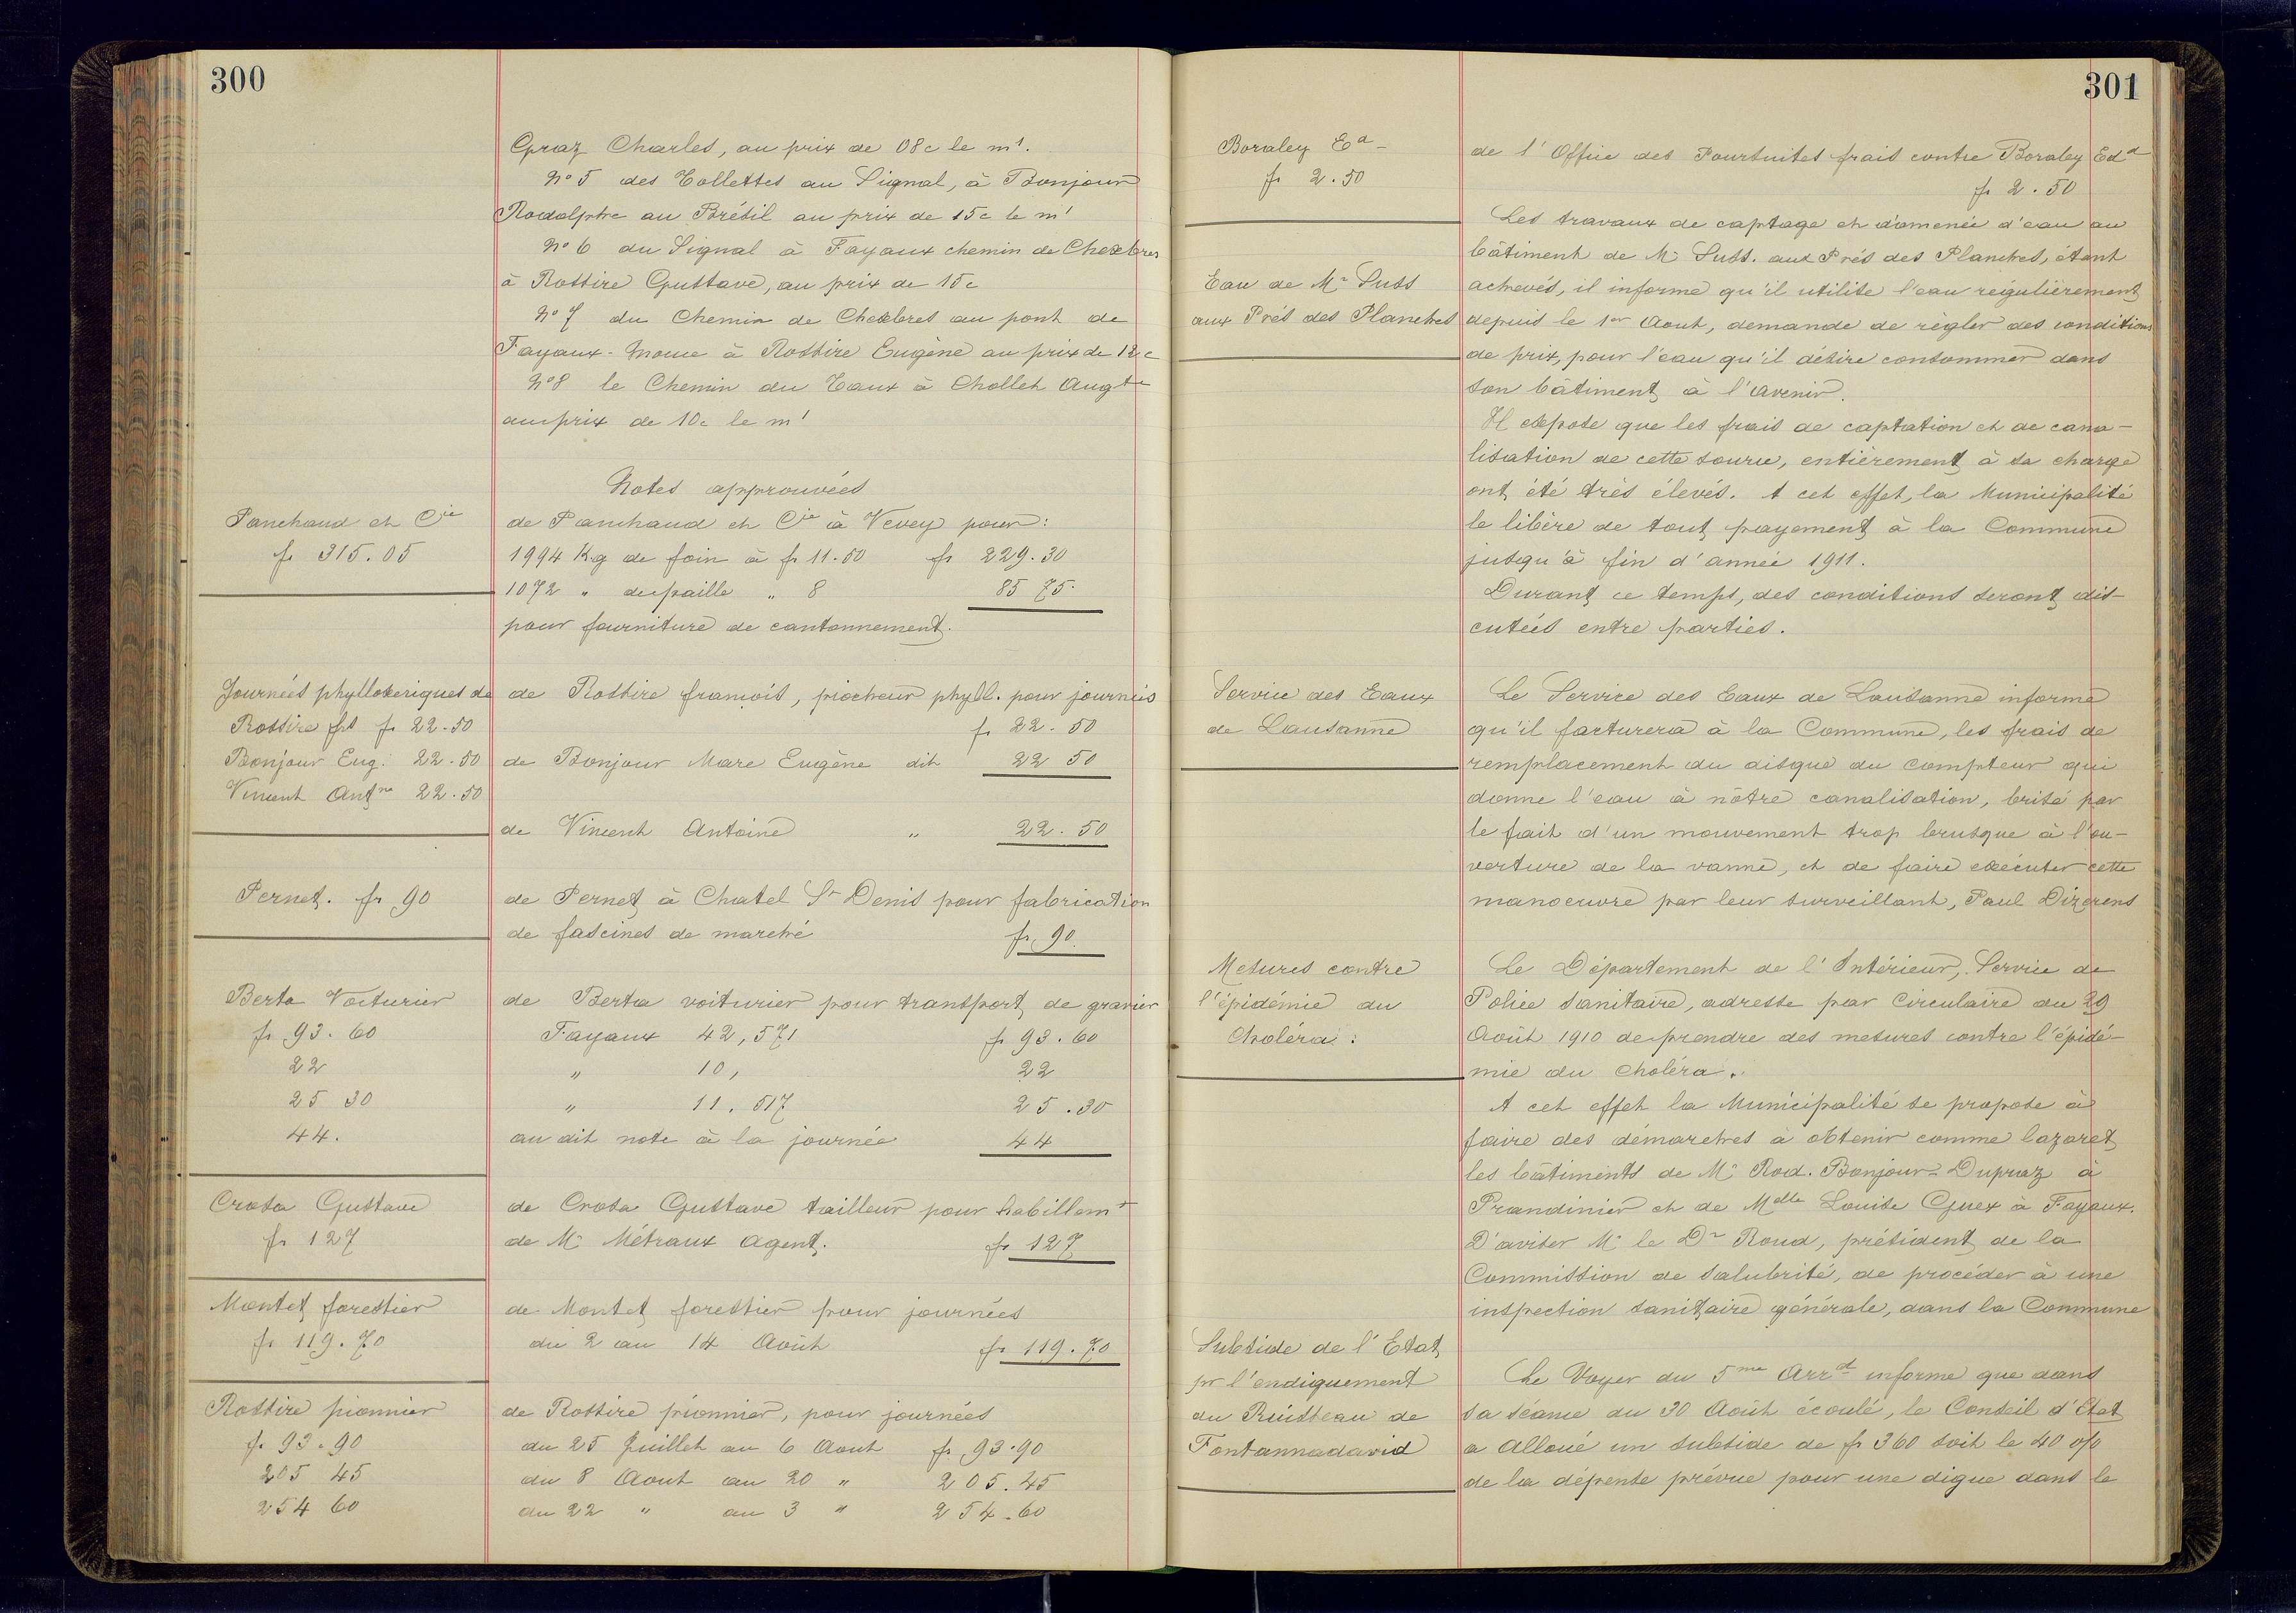 300
Graz Charles, au prix de 08c le m¹.
No 5 des Tollettes au Signal, à Bonjour
Rodolphe au Brésil au prix de 15c le m¹
No 6 du Signal à Fayaux chemin de Chexbres
à Rossire Gustave, au prix de 15c
No 7 du Chemin de Chexbres au pont de
Fayaux-Mouce à Rossire Eugène au prix de 12c
No 8 le Chemin du Taux à Chollet Augte
au prix de 10c le m¹
Notes approuvées
Panchaud et Cie
fr 315.05
de Panchaud et Cie à Vevey pour:
1994 Kg de foin à fr 11.50 fr 229.30
1072 " de paille " 8 85 75
pour fourniture de cantonnement.
Journées phylloxeriques de
Rossire fçs fr 22.50
Bonjour Eug. 22.50
Vincent Antne 22.50
de Rossire françois, piocheur phyll. pour journées
fr 22.50
de Bonjour Marc Eugène dit 22 50
de Vincent Antoine " 22.50
Pernet. fr 90
de Pernet à Chatel St Denis pour fabrication
de fascines de marché fr 90
Berta Voiturier
fr 93.60
22
25 30
44.
de Berta voiturier pour transport de gravier
Fayaux 42,571 fr 93.60
" 10, 22
" 11,517 25.30
au dit note à la journée 44
Crota Gustave
fr 127
de Crota Gustave tailleur pour habillemt
de Mr Métraux Agent. fr 127
Montet forestier
fr 119.70
de Montet forestier pour journées
du 2 au 14 Août fr 119.70
Rossire pionnier
fr 93.90
205 45
254 60
de Rossire pionnier, pour journées
du 25 Juillet au 6 Aout fr 93.90
du 8 Aout au 20 " 205.45
du 22 " au 3 " 254.60
301
Boraley Ed
fr 2.50
de l'Office des Poursuites frais contre Boraley Edd
fr 2.50
Eau de Mr Suss
aux Prés des Planches
Les travaux de captage et d'amenée d'eau au
bâtiment de Mr Suss. aux Prés des Planches, étant
achevés, il informe qu'il utilise l'eau régulièrement
depuis le 1er Aout, demande de règler des conditions
de prix, pour l'eau qu'il désire consommer dans
son bâtiment à l'avenir.
Il expose que les frais de captation et de cana-
lisation de cette source, entièrement à sa charge
ont été très élevés. A cet effet, la Municipalité
le libère de tout payement à la Commune
jusqu'à fin d'année 1911.
Durant ce temps, des conditions seront dis-
cutées entre parties.
Service des Eaux
de Lausanne
Le Service des Eaux de Lausanne informe
qu'il facturera à la Commune, les frais de
remplacement du disque du compteur qui
donne l'eau à nôtre canalisation, brisé par
le fait d'un mouvement trop brusque à l'ou-
verture de la vanne, et de faire exécuter cette
manoeuvre par leur surveillant, Paul Dizerens
Mesures contre
l'épidémie du
Choléra:
Le Département de l'Intérieur, Service de
Police Sanitaire, adresse par Circulaire du 29
Août 1910 de prendre des mesures contre l'épidé-
mie du Choléra.
A cet effet la Municipalité se propose à
faire des démarches à obtenir comme lazaret
les bâtiments de Mr Rod. Bonjour-Dupraz à
Prandinier et de Melle Louise Guex à Fayaux.
D'aviser Mr le Dr Roud, président de la
Commission de salubrité, de procéder à une
inspection sanitaire générale, dans la Commune
Subside de l'Etat
pr l'endiguement
du Ruisseau de
Fontannadavid
Le Voyer du 5me Arrdt informe que dans
sa séance du 30 Août écoulé, le Conseil d'Etat
a alloué un subside de fr 360 soit le 40 o/o
de la dépense prévue pour une digue dans le